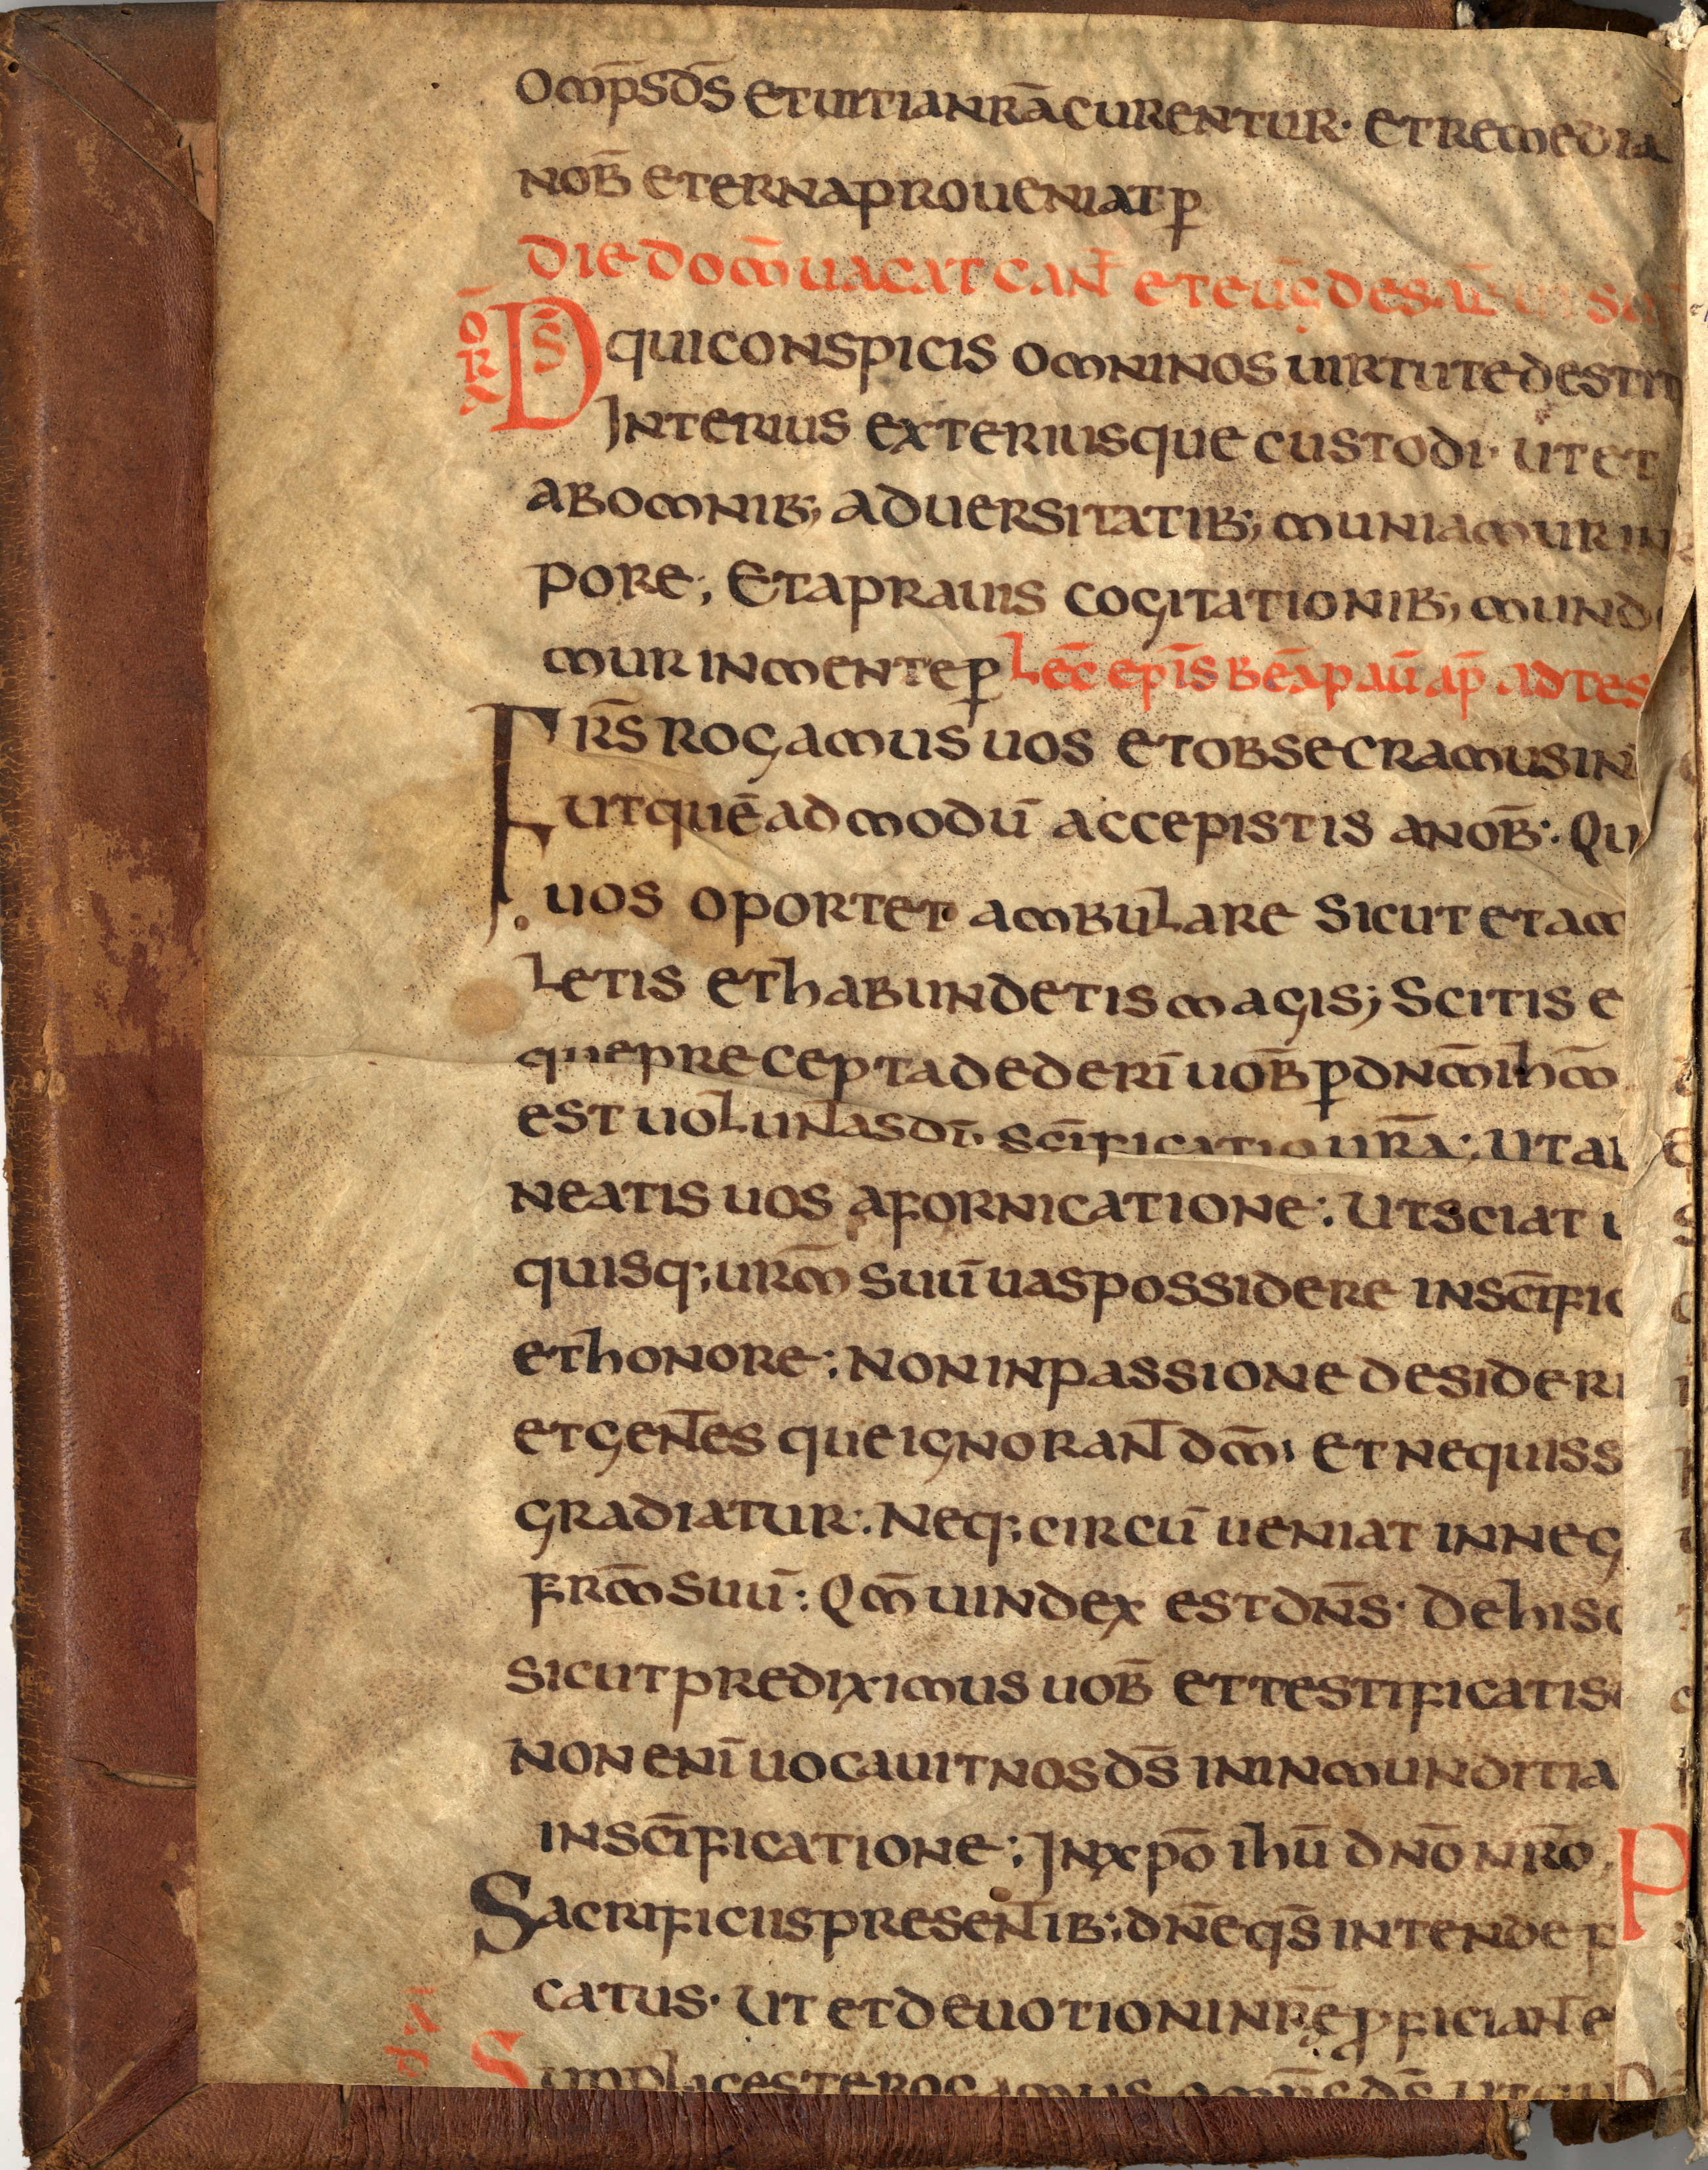 omp̄s d̄s et uitia nr̄a curentur· et remedia
nob̄ eterna proueniat p̱
die dom̄ uacat can̄ et eūg de sab̄
OR̄A
D̄S qui conspicis omni nos uirtute destit
Interius exteriusque custodi· ut et
ab omnib; aduersitatib; muniamur in
pore; Et a prauis cogitationib; mund
mur in mente p̱ Lec̄ epīs beā pau̅ ap̄ ad tes
Fr̄s rogamus uos et obsecramus in
ut quē ad modū accepistis a nob̄:· Qu
uos oportet ambulare sicut et am
letis et habundetis magis; Scitis e
que precepta dederī uob̄ p̱ dn̄m ihm̄
est uoluntas dī· sc̄ificatio ur̄a:· Ut a
neatis uos a fornicatione:· Ut sciat
quisq; ur̄m suū uas possidere in sc̄ific
et honore:· Non in passione desideri
et gentes que ignorant dm̄· et ne quis s
gradiatur:· Neq; circū ueniat in neg
fr̄m suū:· Qm̄ uindex est dn̄s· De his
sicut prediximus uob̄ et testificati s
non enī uocauit nos d̄s in inmunditia
in sc̄ificatione:· In xp̄o ihū dn̄o nr̄o
Sacrificiis presentib; dn̄e qs̄ intende p
catus· ut et deuotioni nr̄ę p̱ficiant e
Simplices te rogamus omp̄s d̄s ut